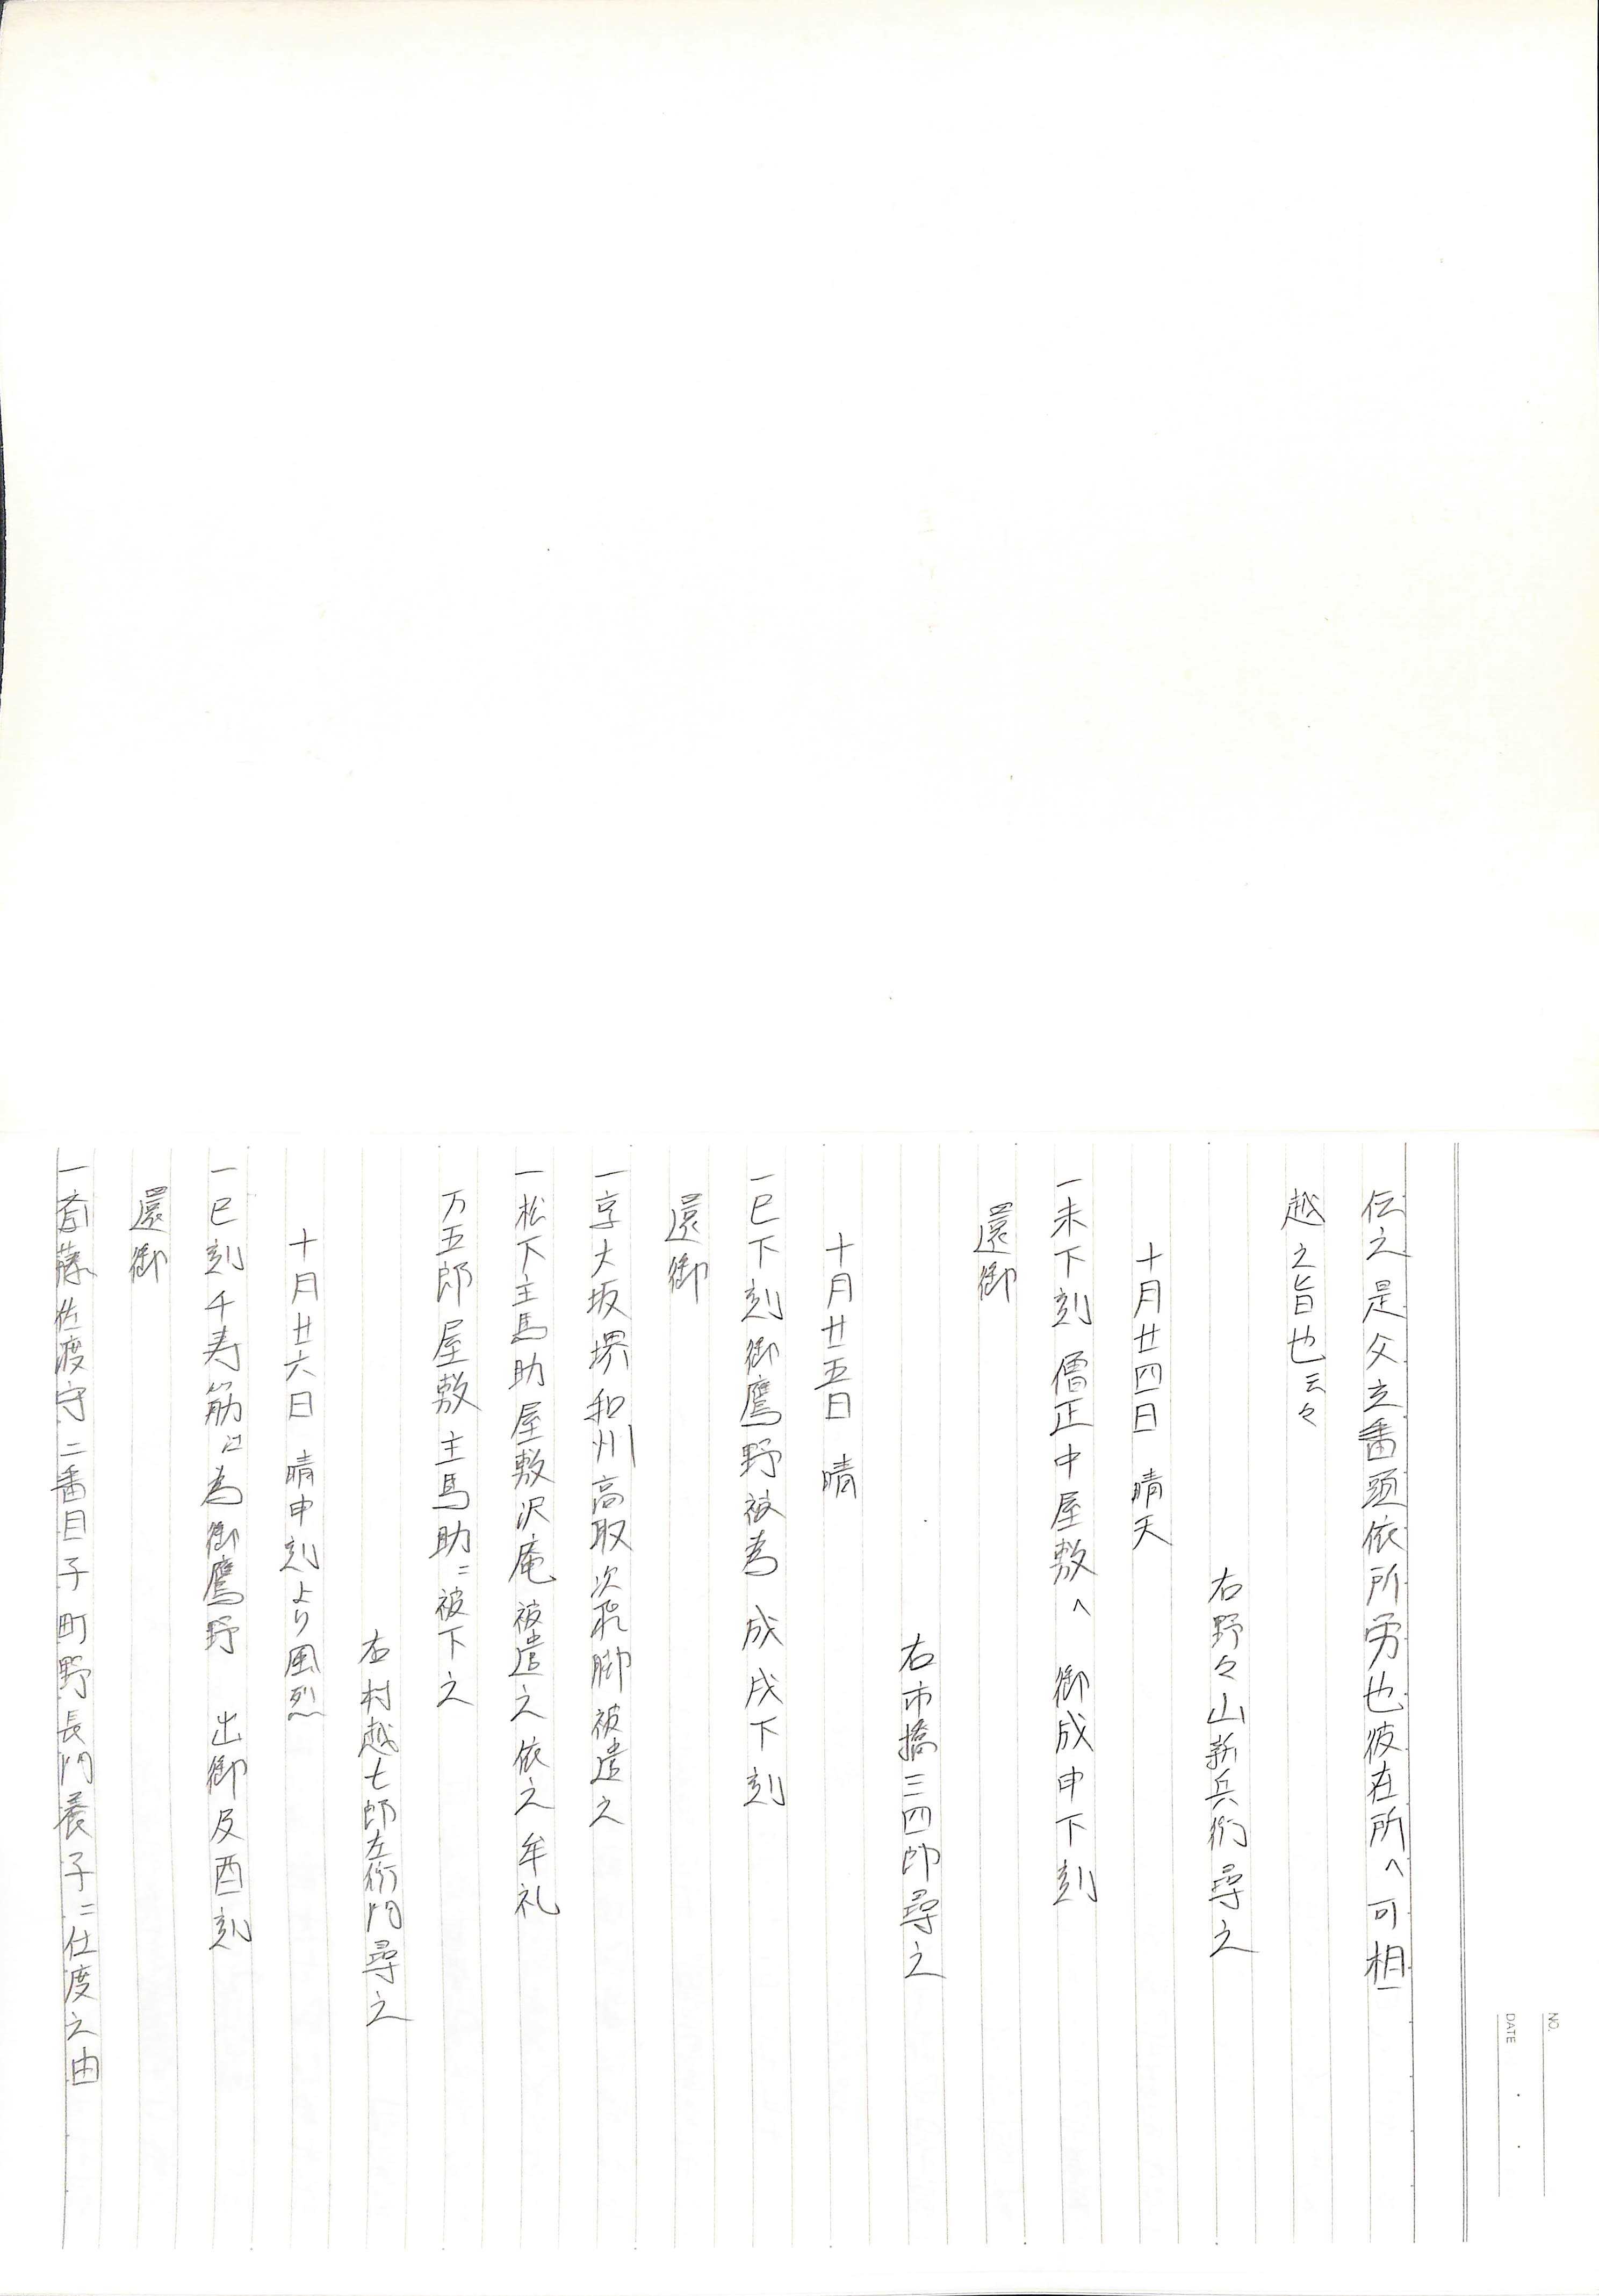 伝之是父立番頭依所労也彼在所へ可相
越之旨也云々
右野々山新兵衛尋之
十月廿四日 晴天
一未下刻 僧正中屋敷へ 御成申下刻
還御
右市橋三四郎尋之
十月廿五日 晴
一巳下刻御鷹野被為 成戌下刻
還御
一京大坂堺和州高取次飛脚被遣之
一松下主馬助屋敷沢庵被遣之依之牟礼
万五郎屋敷主馬助ニ被下之
右村越七郎左衛門尋之
十月廿六日 晴申刻より風烈
一巳刻千寿筋江為御鷹野 出御及酉刻
還御
一斎藤佐渡守二番目子町野長門養子ニ仕度之由
NO.
DATE . .